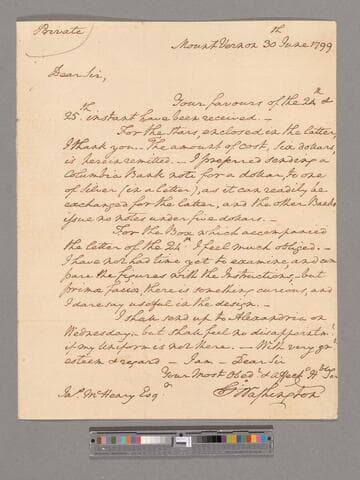 Private
Mount Vernon 30th June 1799
Dear Sir,
Your favours of the 24th &
25th instant have been received. —
For the Stars, enclosed in the latter,
I thank you. The amount of cost, six dollars,
is herein remitted. — I preferred sending a
Columbia Bank note for a dollar, to one
of Silver (in a letter), as it can readily be
exchanged for the latter, and the other Banks
issue no notes under five dollars. —
For the Box which accompanied
the letter of the 24th I feel much obliged. —
I have not had time yet to examine, and com
pare the figures with the Instructions; but
prima facia, there is something curious, and
I dare say useful in the design. —
I shall send up to Alexandria on
Wednesday; but shall feel no disappointmt
if my Uniform is not there. — With very grt
esteem & regard — I am — Dear Sir
Your Most Obedt
Go: Washington
Jas. McHenry Esqr